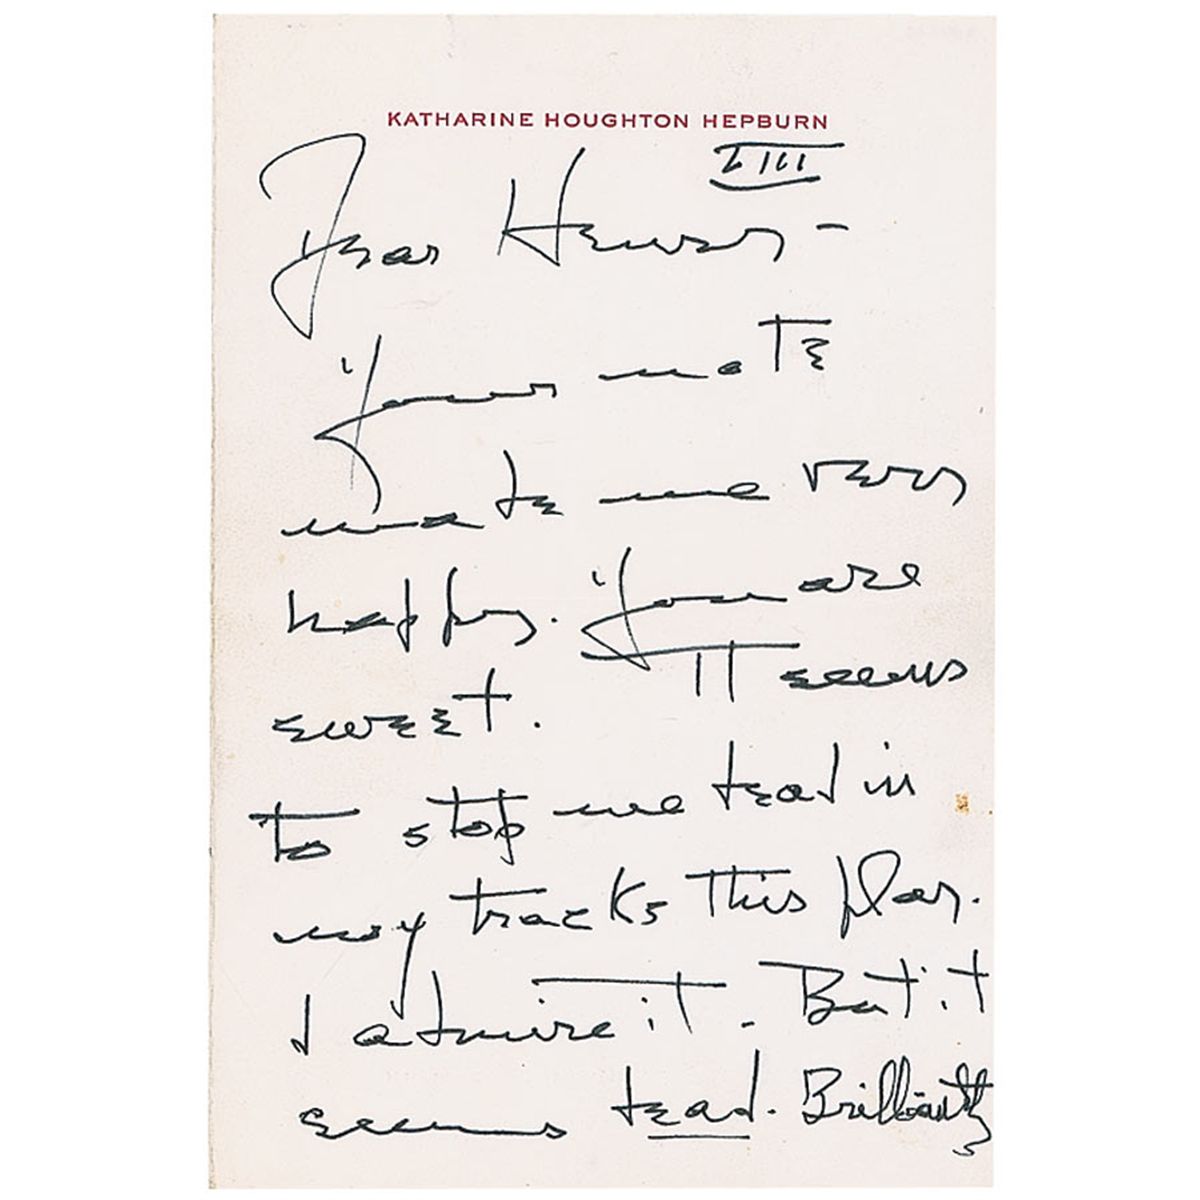 KATHARINE HOUGHTON HEPBURN
I III
Dear Henry –
Your note
made me very
happy. You are
sweet. It seems
to stop me dead in
my tracks this play.
I admire it. But it
seems dead. Brilliantly